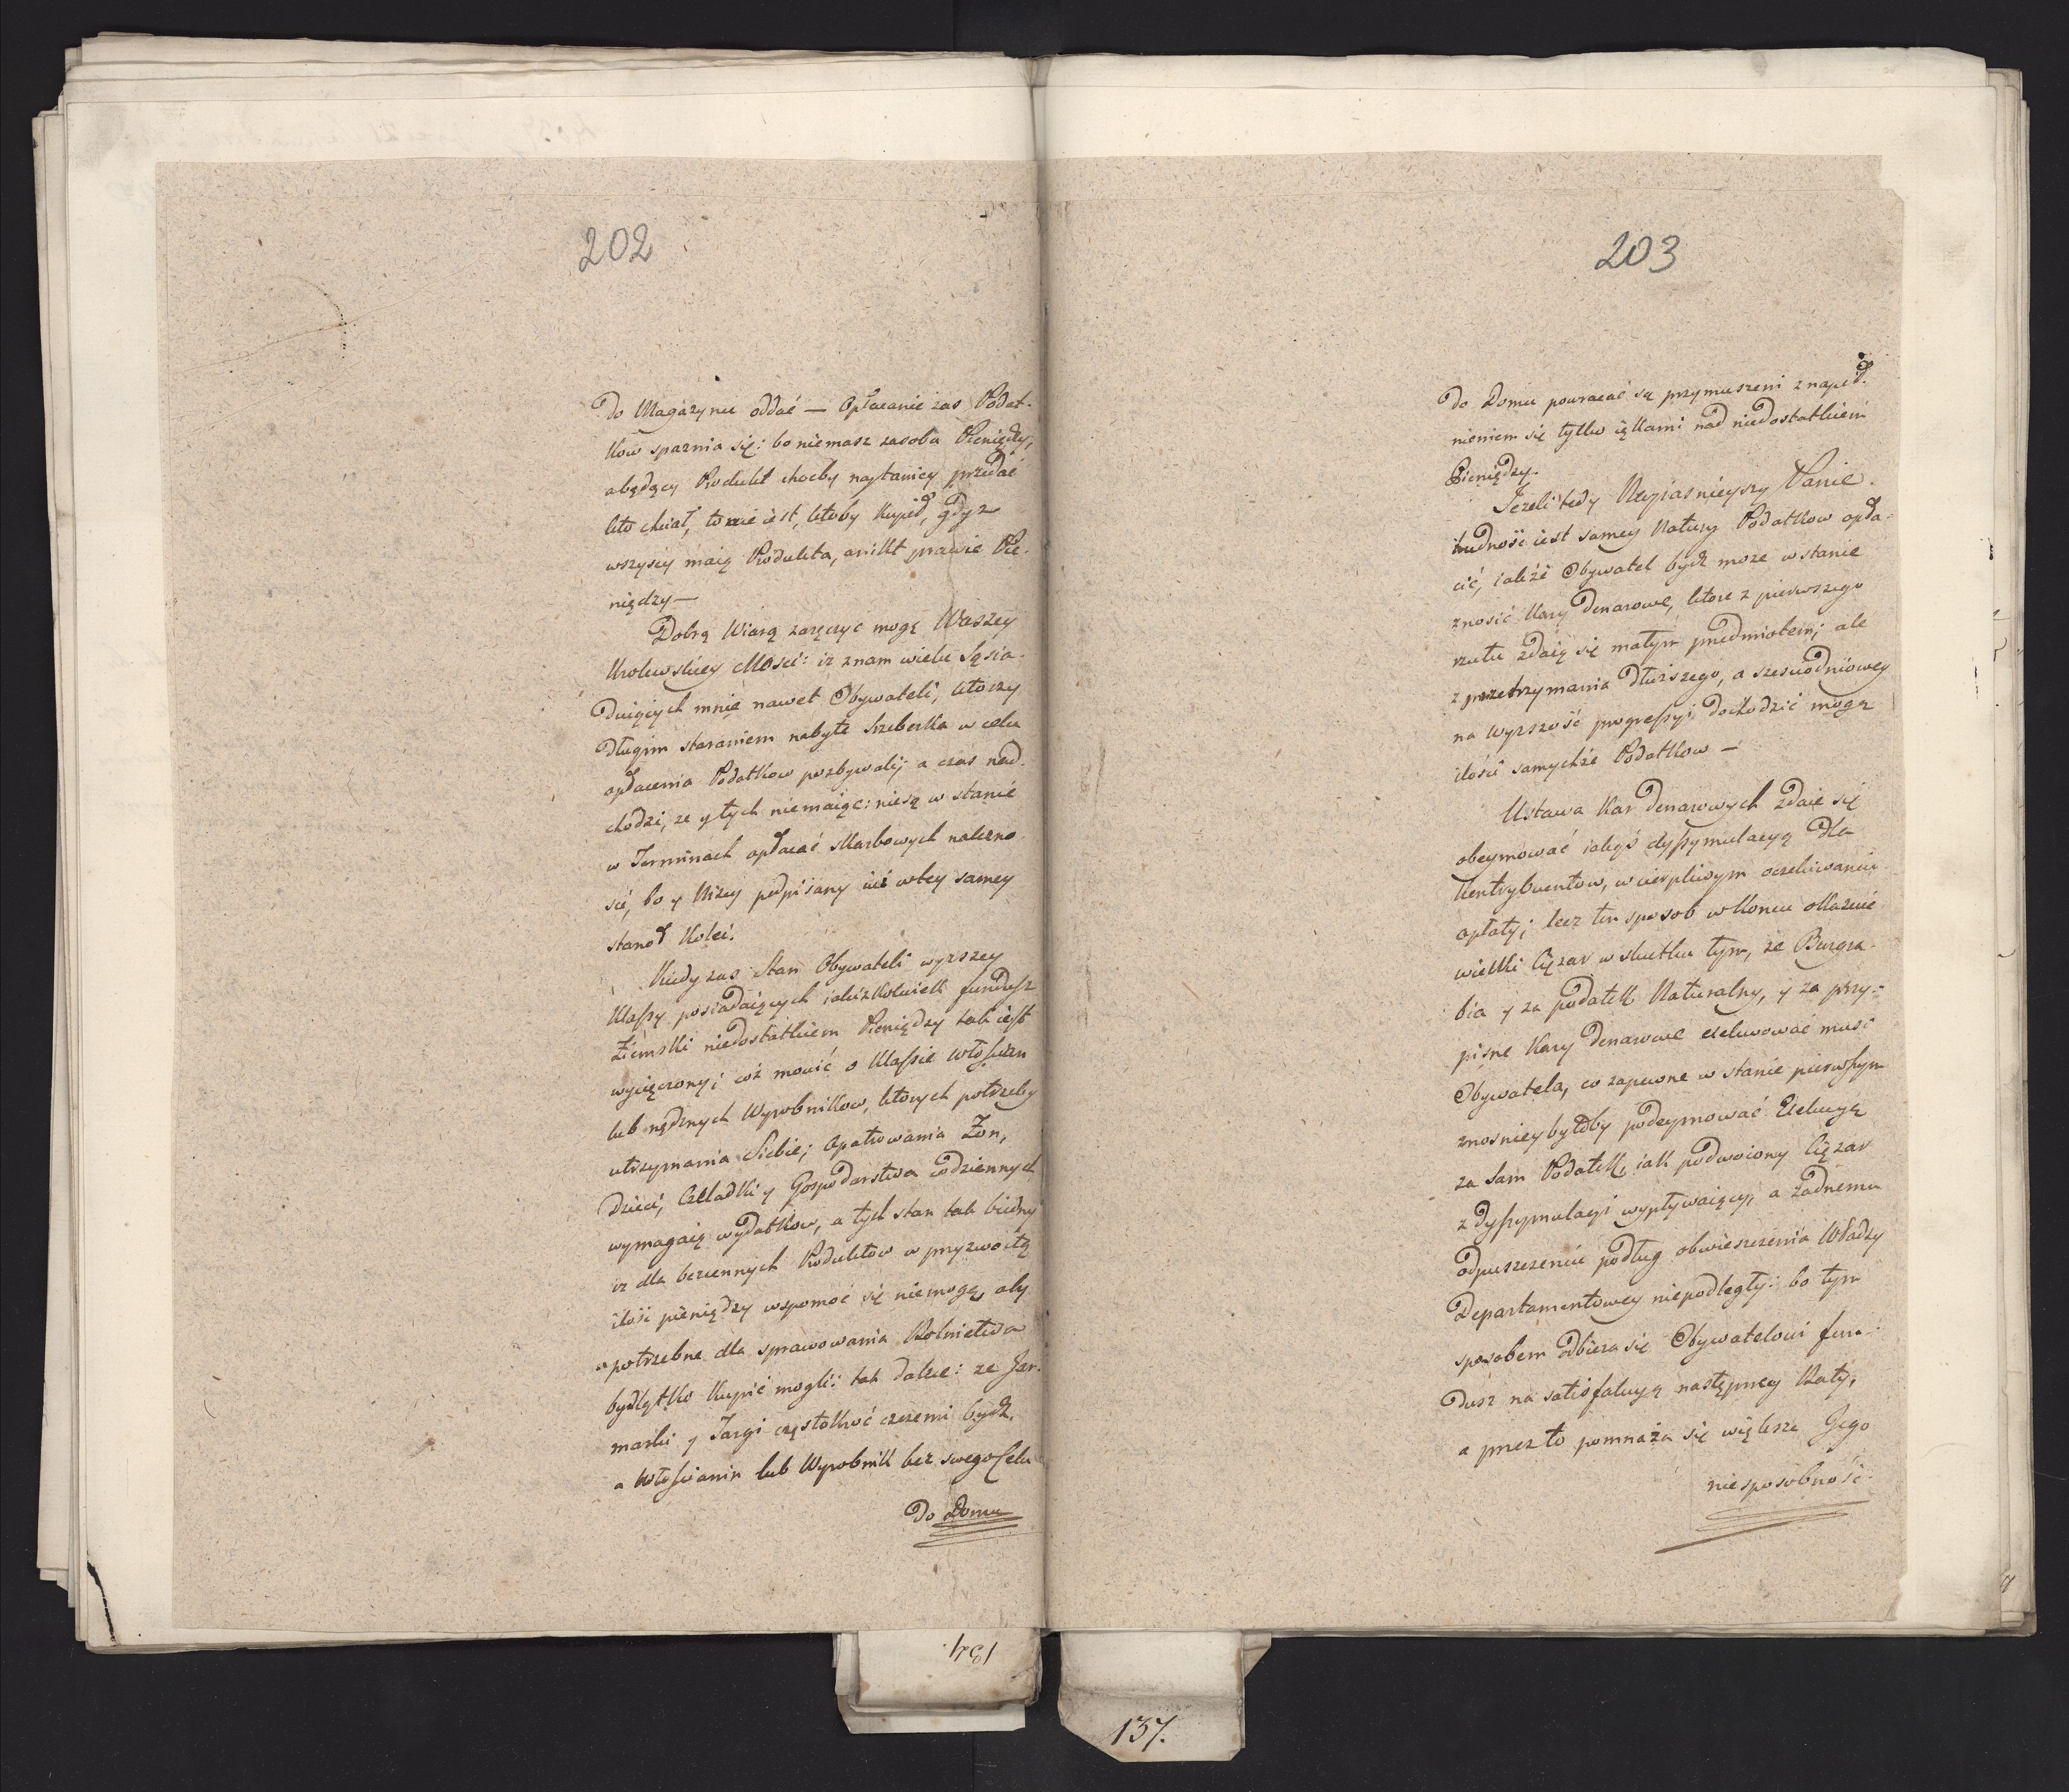 202
Do Magazynu oddać — Opłacanie zas Podat-
kow sparznia się: bo niemasz zasobu Pieniędzy,
abędący Produkt choćby naytaniey przedać
kto chciał, to nie iest, ktoby kupił, gdyz
wszyscy maią Produkta, a nikt prawie Pie-
niędzy —
Dobrą Wiarą zaręczyc mogę Waszey
Krolewskiey Mości: iz znam wielu Sąsia-
duiących mnie nawet Obywateli, ktorzy
długim staraniem nabyte Srzeberka w celu
opłacenia Podatkow pozbywali; a czas nad-
chodzi, ze y tych niemaiąc: niesą w stanie
w Terminach opłacać Skarbowych nalezno
sci, bo y Nizey podpisany iuż wtey samey
stanoł Kolei.
Kiedy zas Stan Obywateli wyzszey
Klassy posiadaiących iakizkolwiek fundusz
Ziemski niedostatkiem Pieniędzy tak iest
wycięczony; coż mowić o Klassie Włościan
lub nędznych Wyrobnikow, ktorych potrzeby
utrzymania Siebie; Opatrowania Zon,
Dzieci, Czeladki y Gospodarstwa codziennych
wymagaią wydatkow, a tych stan tak biedny
iz dla bezcennych Produktow w przyzwoitą
ilosc pieniędzy wspomoć się niemogą, aby
potrzebne dla sprawowania Rolnictwa
bydlątko kupić mogli: tak dalece: ze Jar-
marki y Targi częstokroć czczemi bydź,
a Włościanin lub Wyrobnik bez swego Celu
Do Domu
203
Do Domu powracać są przymuszeni z napeł-
nieniem się tylko iękami nad niedostatkiem
Pieniędzy.
Jezeli tedy Nayiasnieyszy Panie
trudność iest samey Natury Podatkow opła-
cić, iakże Obywatel bydź moze w stanie
znosić Kary Denarowe, ktore z pierwszego
rzutu zdaią się małym przedmiotem; ale
z przetrzymania dłuzszego, a szesciodniowey
na wyzszość progressyi dochodzić mogą
ilości samychże Podatkow —
Ustawa Kar Denarowych zdaie się
obeymować iakąś dyssymulacyą dla
Kontrybuentow, w cierpliwym oczekiwaniu
opłaty; lecz ten sposob w Koncu okazuie
wielki Cięzar w skutku tym, ze Burgra-
bia y za podatek Naturalny, y za przy-
pisne Kary Denarowe exekwować musi
Obywatela, co zapewne w stanie pierwszym
znosniey byłoby podeymować Exekucyą
za Sam Podatek, iak podwoiony Cięzar
z dyssymulacyi wypływaiący, a Żadnemu
odpuszczeniu podług obwieszczenia Władzy
Departamentowey niepodległy: bo tym
sposobem odbiera się Obywatelowi fun-
dusz na satisfakcyą następney Raty,
a przez to pomnaża się większe Jego
niesposobność.
134.
137.